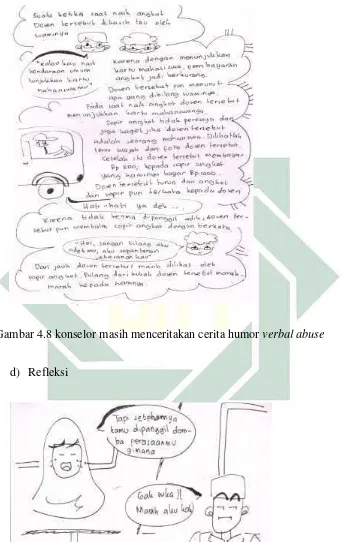 Suatu ketika saat naik angkot
Dosen tersebut dikasih tau oleh
suaminya
"kalau kau naik
kendaraan umum
tunjukkan kartu
mahasiswamu"
karena dengan menunjukkan
kartu mahasiswa, pembayaran
angkot jadi berkurang.
Dosen tersebut pun menurut
apa yang dibilang suaminya.
Pada saat naik angkot dosen tersebut
menunjukkan kartu mahasiswanya
Sopir angkot tidak percaya dan
juga kaget jika dosen tersebut
adalah seorang mahasiswa. Dilihatlah
terus wajah dan foto dosen tersebut.
Setelah itu dosen tersebut membayar
Rp 500, kepada sopir angkot
yang harusnya bayar Rp 1000..
Dosen tersebut turun dari angkot
dan sopir pun berkata kepada dosen
Hati-hati ya dek ...
Karena tidak terima dipanggil adik, dosen ter-
sebut pun membalas sopir angkot dengan berkata,
jangan bilang aku
aku
Dari jauh dosen tersebut masih dilihat oleh
sopir angkot. Pulang dari kuliah dosen tersebut marah-
marah kepada suaminya.
Gambar 4.8 konselor masih menceritakan cerita humor verbal abuse
d) Refleksi
Tapi seteharnya
kamu dipanggil dom-
ba perasaanmu
gimana
Gak suka!!
Marah aku kak